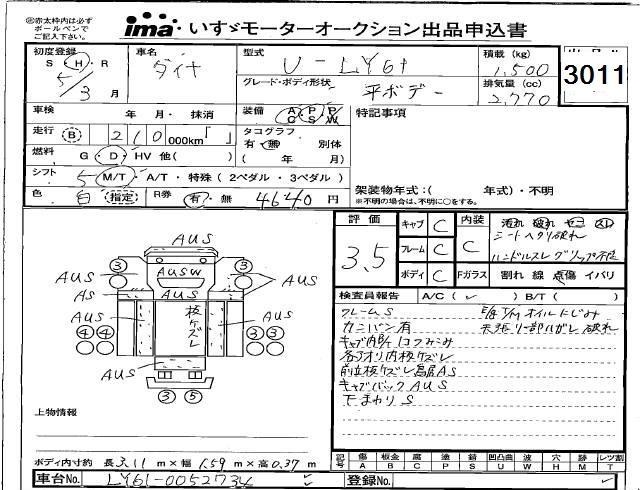 ㊟赤太枠内は必ず
ボールペンで
ご記入下さい。
ima いすゞモーターオークション出品申込書
初度登録
S・H・R
5/3 月
車名
ダイナ
型式
U-LY61
積載 (kg)
1,500
グレード・ボディ形状
平ボデー
排気量 (cc)
2,770
3011
車検 年 月・ 抹消
装備 A/C P/S P/W
特記事項
走行 B 210 000km「 」
タコグラフ
有・無 別体
( 年 月)
燃料 G・D・HV 他( )
シフト 5 M/T・A/T・特殊 ( 2ペダル・3ペダル )
架装物年式:( 年式)・不明
※不明の場合は、不明に○をする。
色 白 指定
R券 有・無 4640円
評価
3.5
キャブ C
フレーム C
ボディ C
内装 C
汚れ 破れ
シートヘタリ破れ
ハンドルスレ
Fガラス 割れ 線 点傷 イバリ
AUS
3 3
AUS AUSW AUS
AS AUS
AUS 板ケズレ AUS
4 4 3 3
AUS AUS
3 5
検査員報告 A/C( ✓ ) B/T( )
フレームS
カンバン有
キャブ内 コフミコミ
各アオリ内板ケズレ
前立板ケズレ AS
キャブバック AUS
下まわりS
オイルにじみ
天張リ一部ハガレ 破れ
上物情報
ボディ内寸約 長 3.11 m×幅 1.59 m×高 0.37 m
記号 傷 板金 腐 塗 錆 凹凸曲 波 穴 跡 レツ割
A B C P S U W H M T
車台No. LY61-0052734
登録No.